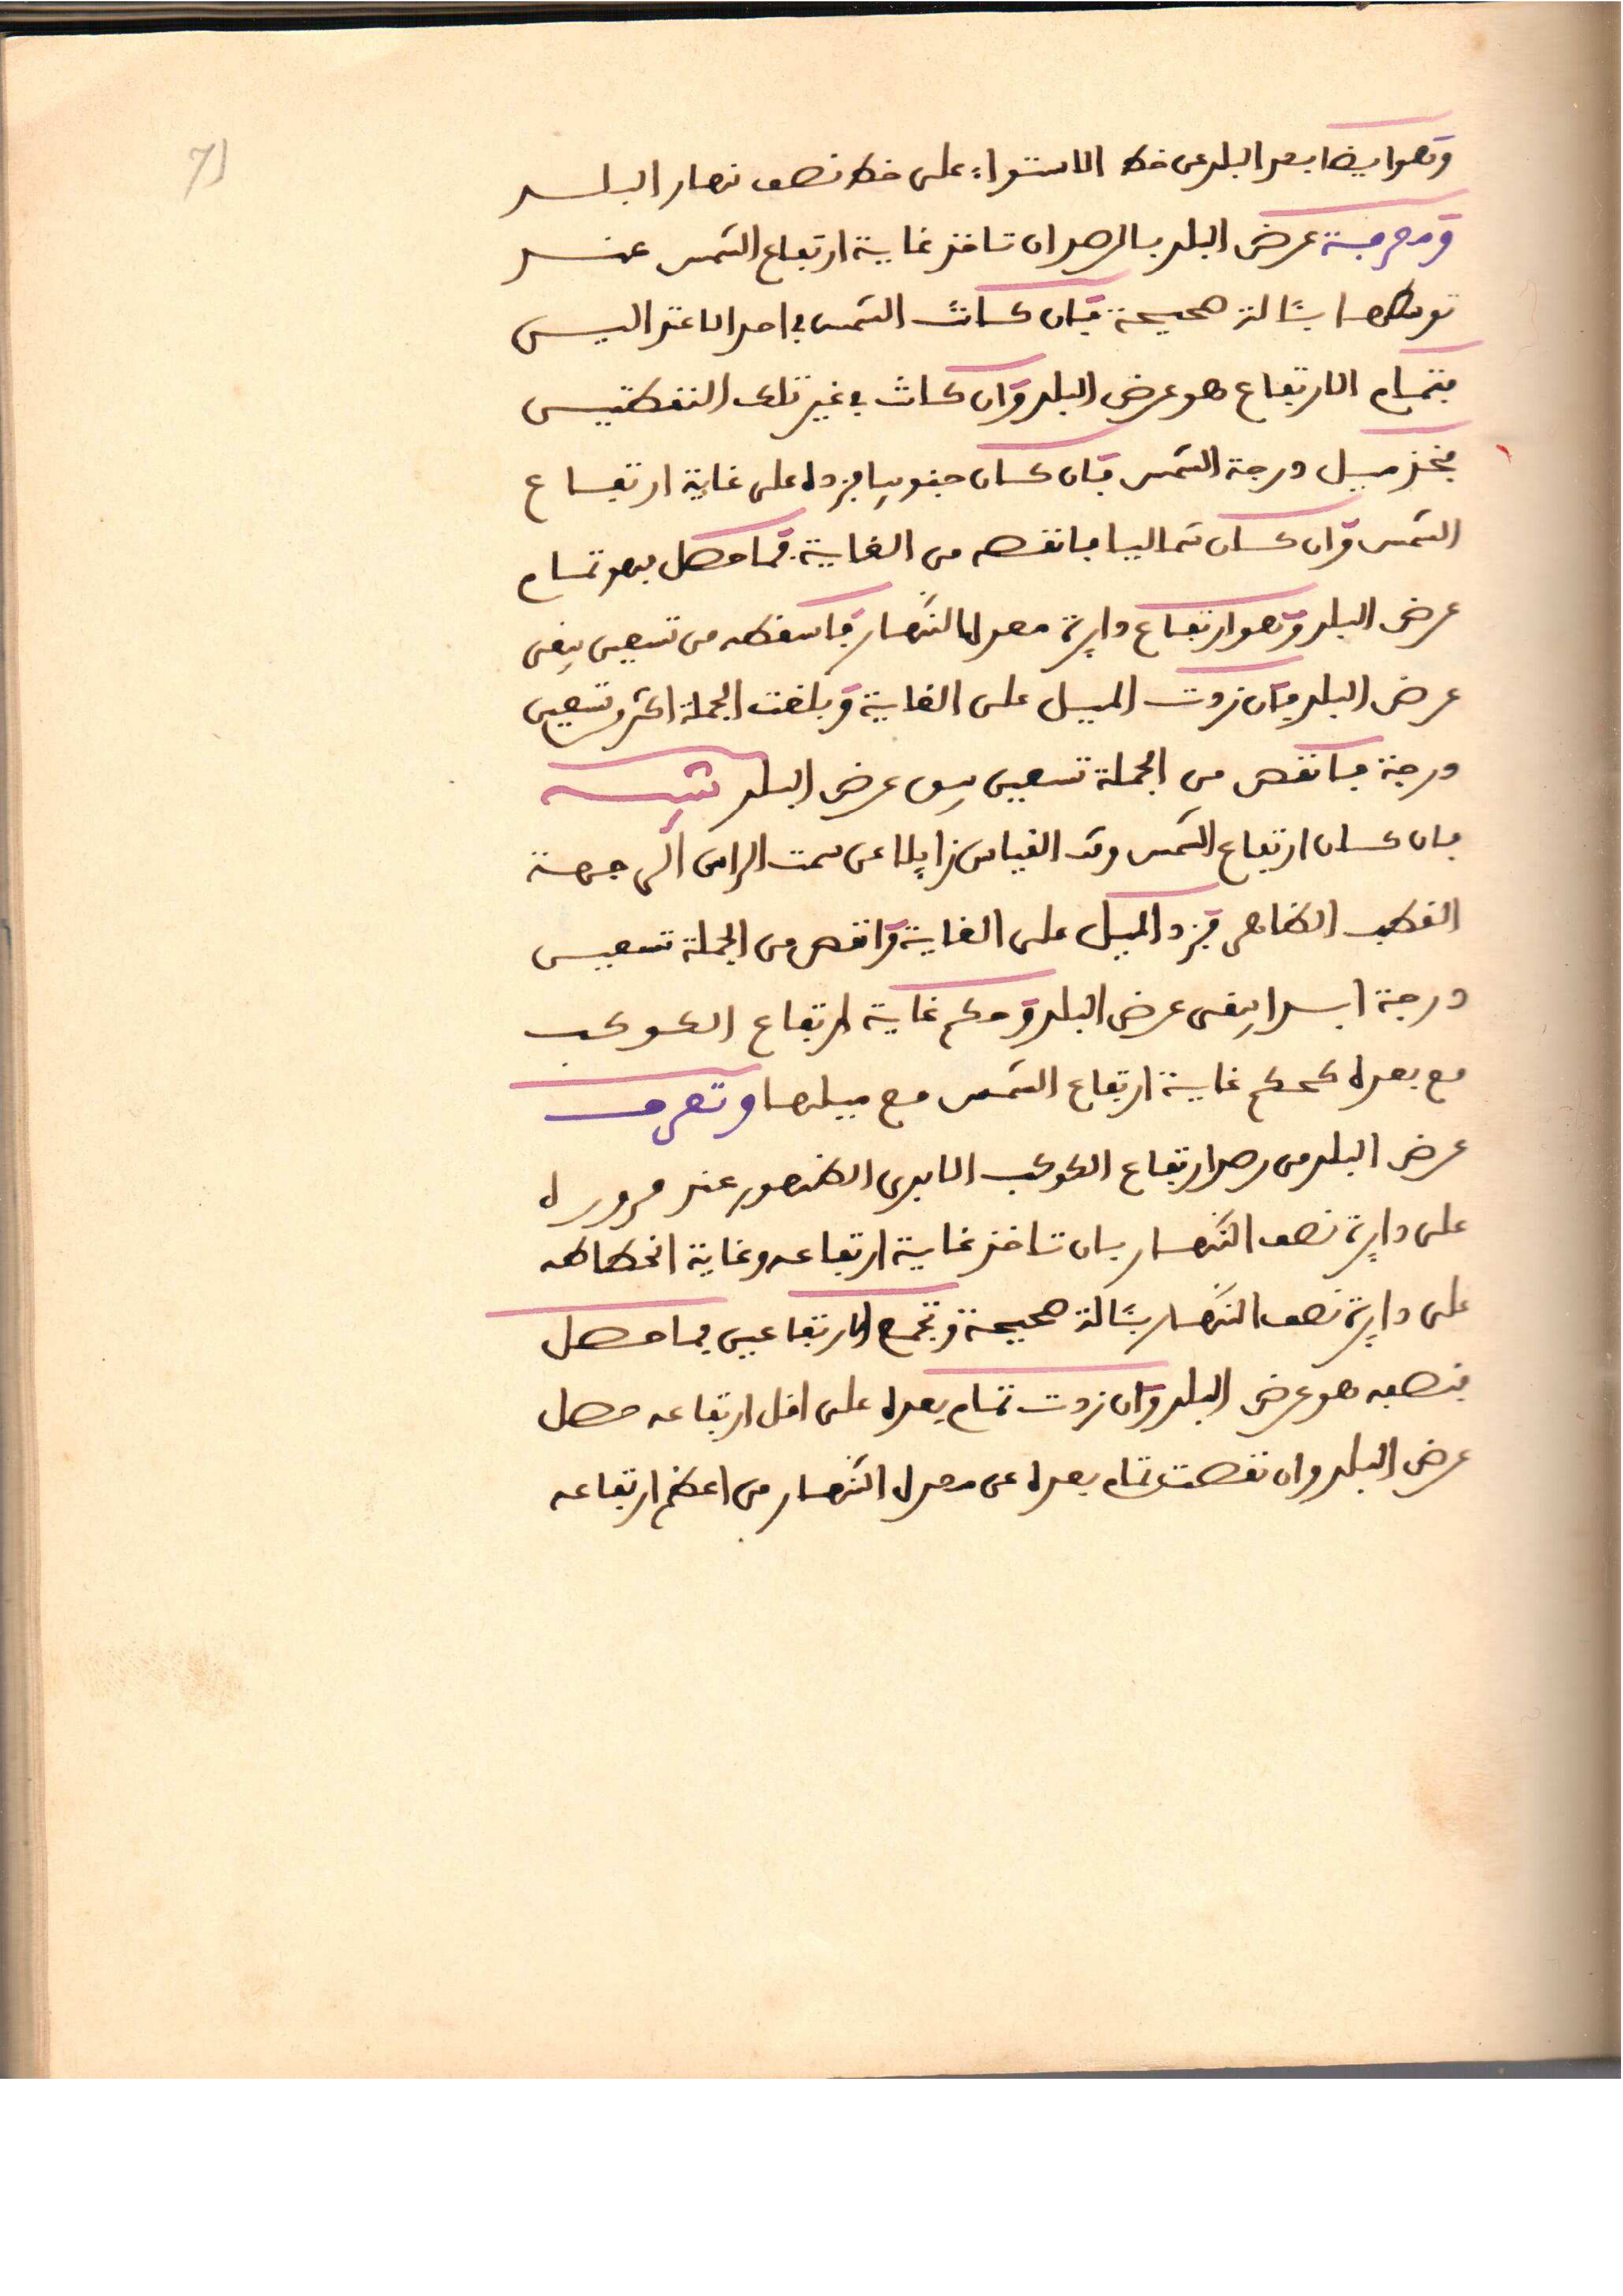 71
وهو ايضا بعد البلد عن خط الاستواء على خط نصف نهار البلد
ومعرفة عرض البلد بالرصد ان تاخذ غاية ارتفاع الشمس عند
توسطها بئالة صحيحة فان كانت الشمس في احد الاعتدالين
فتمام الارتفاع هو عرض البلد وان كانت في غير تلك النقطتين
فخذ ميل درجة الشمس فان كان جنوبيا فزده على غاية ارتفاع
الشمس وان كان شماليا فانقصه من الغاية فما حصل فهو تمام
عرض البلد وهو ارتفاع دايرة معدل النهار فاسقطه من تسعين يبقى
عرض البلد فان زدت الميل على الغاية وبلغت الجملة اكثر من تسعين
درجة فانقص من الجملة تسعين يبق عرض البلد تنبيه
فان كان ارتفاع الشمس وقت القياس زايلا عن سمت الراس الى جهة
القطب الظاهر فزد الميل على الغاية وانقص من الجملة تسعين
درجة ابدا يبقى عرض البلد وحكم غاية ارتفاع الكوكب
مع بعده كحكم غاية ارتفاع الشمس مع ميلها وتعرف
عرض البلد من رصد ارتفاع الكوكب الابدي الظهور عند مروره
على دايرة نصف النهار بان تاخذ غاية ارتفاعه وغاية انحطاطه
على دايرة نصف النهار بئالة صحيحة وتجمع الارتفاعين فما حصل
فنصفه هو عرض البلد وان زدت تمام بعده على اقل ارتفاعه حصل
عرض البلد وان نقصت تمام بعده عن معدل النهار من اعظم ارتفاعه